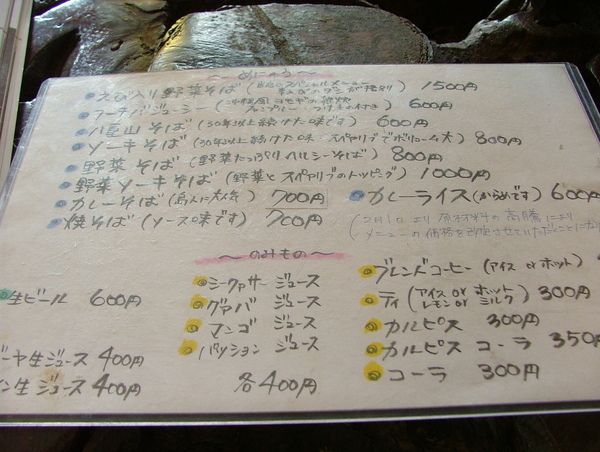 ～めにゅう～
えび入り野菜そば (当店のスペシャルメニュー えびのダシが格別) 1500円
フーチバジューシー (沖縄風ヨモギの雑炊 つけもの付き) 600円
八重山そば (30年以上続けた味です) 600円
ソーキそば (30年以上続けた味 スペアリブでボリューム大) 800円
野菜そば (野菜たっぷりヘルシーそば) 800円
野菜ソーキそば (野菜とスペアリブのトッピング) 1000円
カレーそば (島人に大人気) 700円
カレーライス (からめです) 600円
焼そば (ソース味です) 700円
(2月1日より原材料の高騰により
メニューの価格を改定させていただくことになり
～のみもの～
生ビール 600円
ーヤ生ジュース 400円
ン生ジュース 400円
シークァサー ジュース
グァバ ジュース
マンゴ ジュース
パッション ジュース
各400円
ブレンドコーヒー (アイス or ホット)
ティ (アイス or ホット レモン or ミルク) 300円
カルピス 300円
カルピスコーラ 350円
コーラ 300円